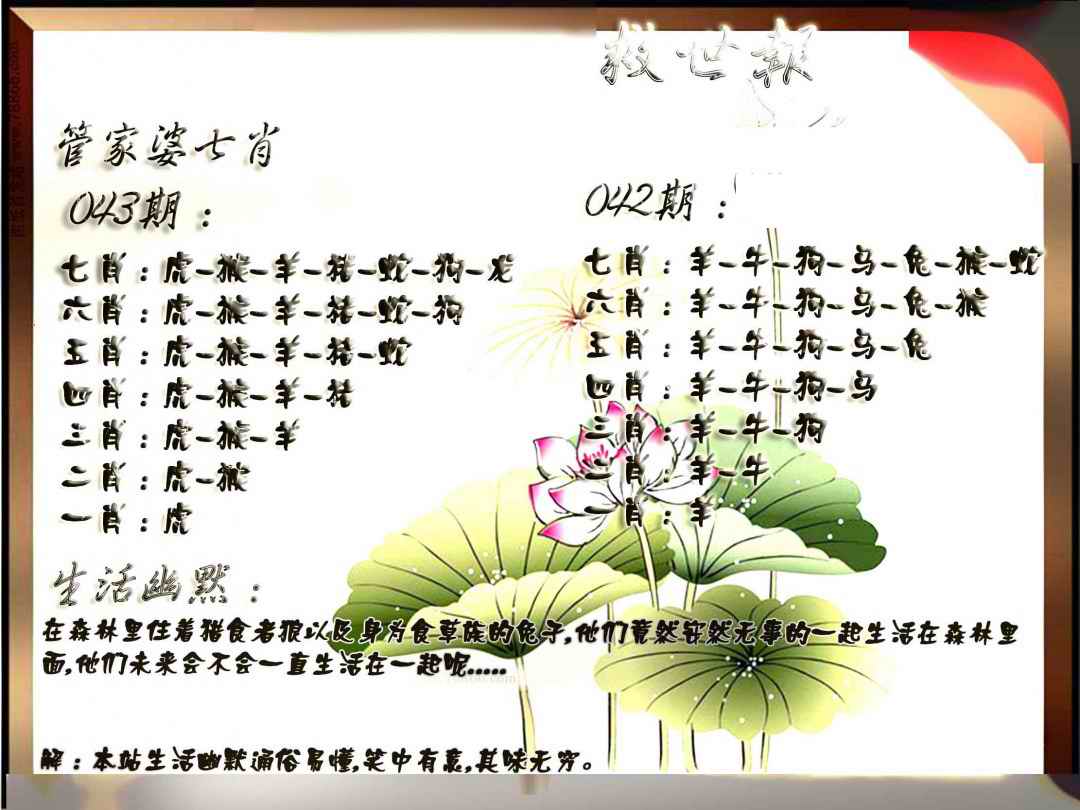 救世報
管家婆七肖
043期：
七肖：虎-猴-羊-猪-蛇-狗-龙
六肖：虎-猴-羊-猪-蛇-狗
五肖：虎-猴-羊-猪-蛇
四肖：虎-猴-羊-猪
三肖：虎-猴-羊
二肖：虎-猴
一肖：虎
042期：
七肖：羊-牛-狗-马-兔-猴-蛇
六肖：羊-牛-狗-马-兔-猴
五肖：羊-牛-狗-马-兔
四肖：羊-牛-狗-马
三肖：羊-牛-狗
二肖：羊-牛
一肖：羊
生活幽默：
在森林里住着猎食者狼以及身为食草族的兔子,他们竟然安然无事的一起生活在森林里
面,他们未来会不会一直生活在一起呢.....
解：本站生活幽默通俗易懂,笑中有意,其味无穷。